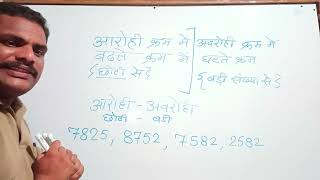 आरोही क्रम में
बढ़ते क्रम में
{ छोटी से }
अवरोही क्रम में
घटते क्रम
{ बड़ी संख्या से }
आरोही - अवरोही
छोटा - बड़ी
7825, 8752, 7582, 2582